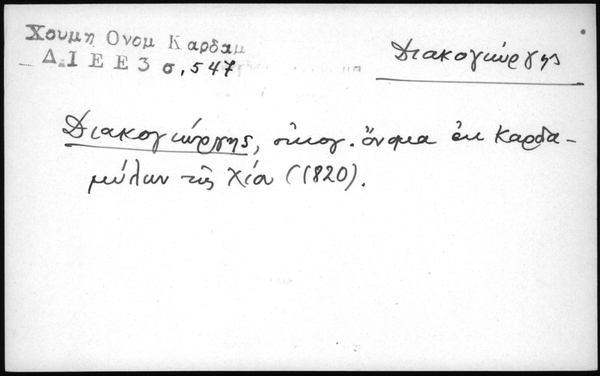 Χουμη Ονομ Καρδαμ
Δ.Ι Ε Ε 3 σ, 547
Διακογιώργης
Διακογιώργης, οἰκογ. ὄνομα ἐκ Καρδα-
μύλων τῆς Χίου (1820).